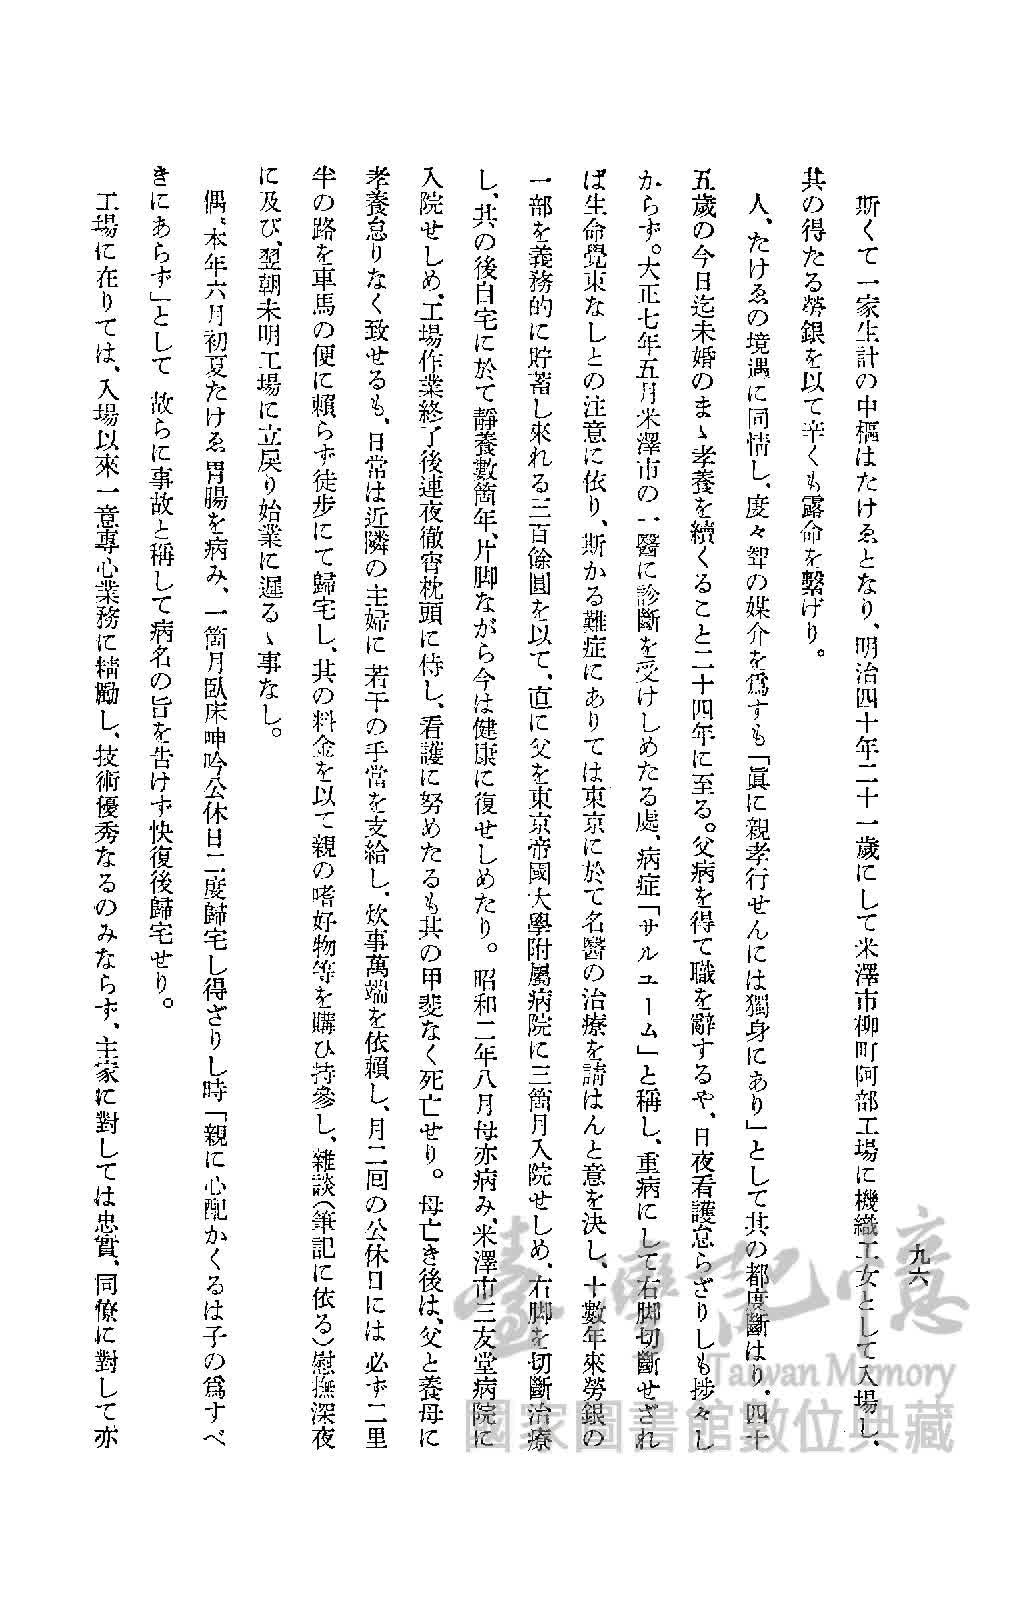 九六
斯くて一家生計の中樞はたけゑとなり、明治四十年二十一歳にして米澤市柳町阿部工場に機織工女として入場し、
其の得たる勞銀を以て辛くも露命を繫げり。
人、たけゑの境遇に同情し、度々聟の媒介を爲すも「眞に親孝行せんには獨身にあり」として其の都度斷はり、四十
五歳の今日迄未婚のまゝ孝養を續くること二十四年に至る。父病を得て職を辭するや、日夜看護怠らざりしも捗々し
からず。大正七年五月米澤市の一醫に診斷を受けしめたる處、病症「サルユーム」と稱し、重病にして右脚切斷せざれ
ば生命覺束なしとの注意に依り、斯かる難症にありては東京に於て名醫の治療を請はんと意を決し、十數年來勞銀の
一部を義務的に貯蓄し來れる三百餘圓を以て、直に父を東京帝國大學附屬病院に三箇月入院せしめ、右脚を切斷治療
し、其の後自宅に於て靜養數箇年、片脚ながら今は健康に復せしめたり。昭和二年八月母亦病み、米澤市三友堂病院に
入院せしめ、工場作業終了後連夜徹宵枕頭に侍し、看護に努めたるも其の甲斐なく死亡せり。母亡き後は、父と養母に
孝養怠りなく致せるも、日常は近隣の主婦に若干の手當を支給し、炊事萬端を依賴し、月二回の公休日には必ず二里
半の路を車馬の便に賴らず徒步にて歸宅し、其の料金を以て親の嗜好物等を購ひ持參し、雜談(筆記に依る)慰撫深夜
に及び、翌朝未明工場に立戾り始業に遲るゝ事なし。
偶〻本年六月初夏たけゑ胃腸を病み、一箇月臥床呻吟公休日二度歸宅し得ざりし時「親に心配かくるは子の爲すべ
きにあらず」として故らに事故と稱して病名の旨を告けず快復後歸宅せり。
工場に在りては、入場以來一意專心業務に精勵し、技術優秀なるのみならず、主家に對しては忠實、同僚に對して亦
臺灣記憶
Taiwan Memory
國家圖書館數位典藏